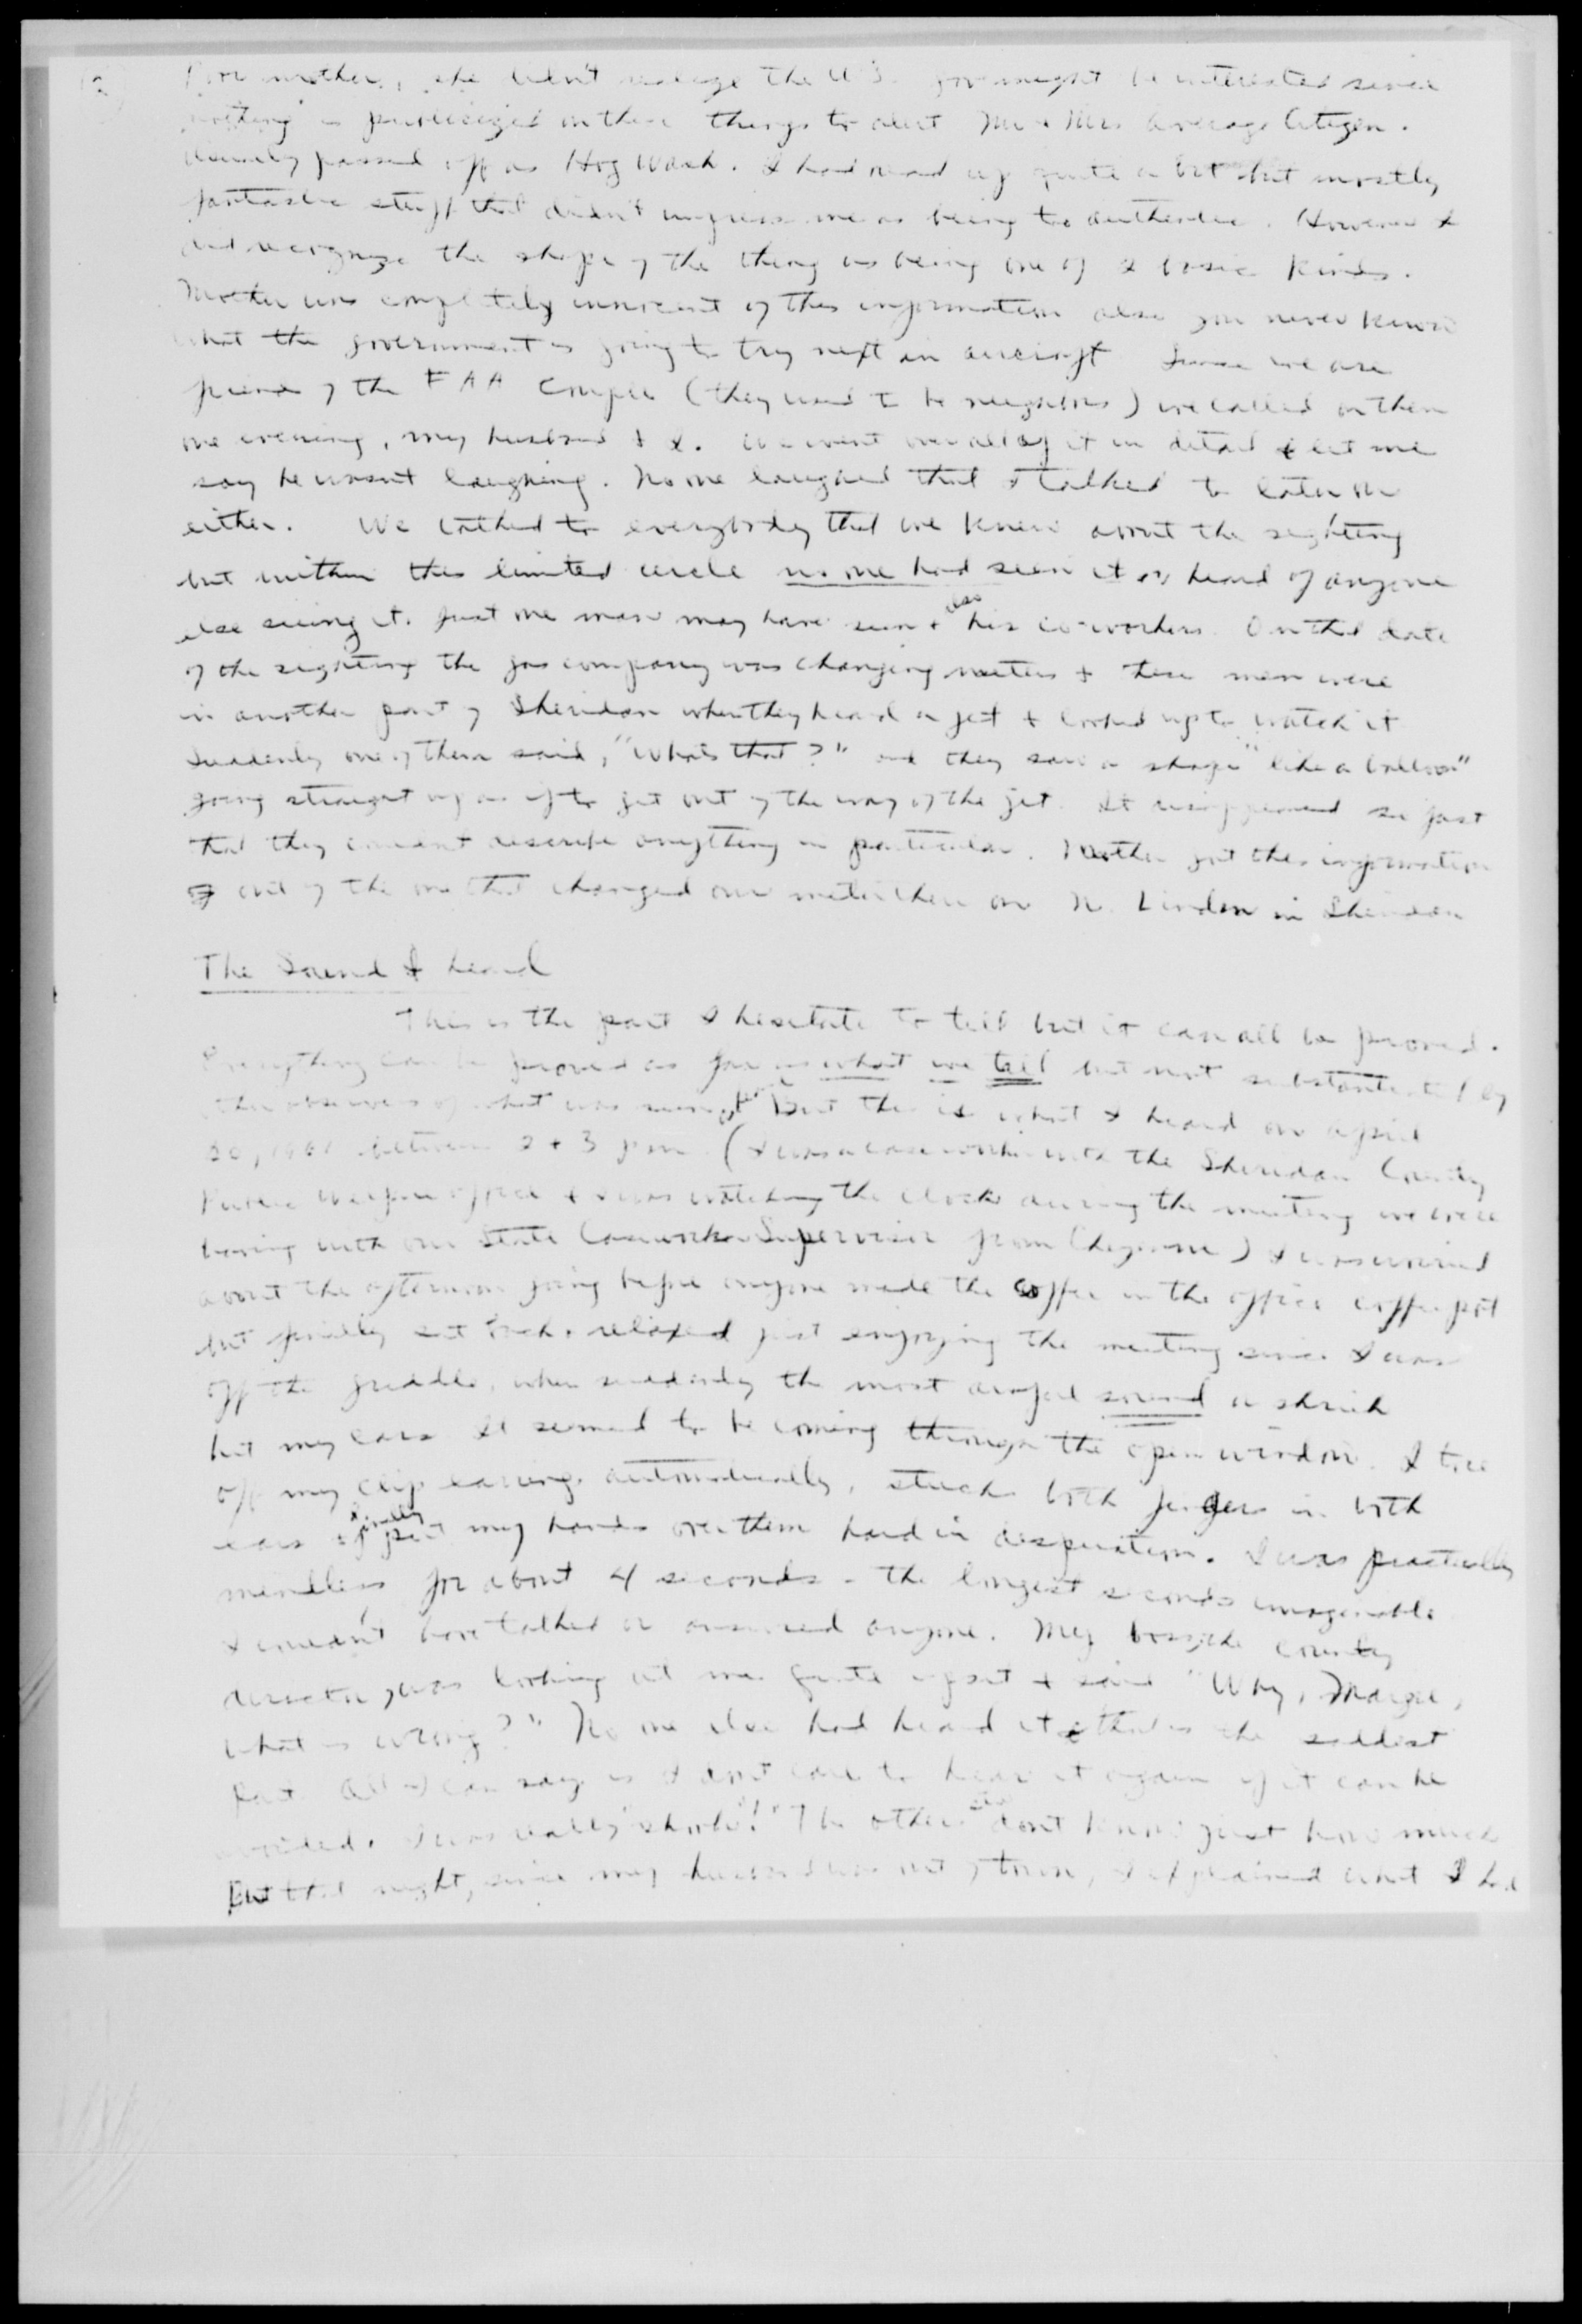 mother, she didn't realize the U.S. Gov might be interested since
nothing is publicized on these things to alert Mr & Mrs Average Citizen.
Usually passed off as Hog Wash. I had read up quite a bit but mostly
fantastic stuff that didn't impress me as being too authentic. However I
did recognize the shape of the thing as being one of basic kinds.
Mother was completely innocent of this information also you never know
what the government is going to try next in aircraft. Since we are
friends of the FAA couple (they used to be neighbors) we called on them
one evening, my husband & I. We went over all of it in detail & let me
say he wasn't laughing. No one laughed that I talked to later on
either. We talked to everybody that we knew about the sighting
but within this limited circle no one had seen it or heard of anyone
else seeing it. Just one man may have seen & also his co-workers. On the date
of the sighting the gas company was changing meters & these men were
in another part of Sheridan when they heard a jet & looked up to watch it
Suddenly one of them said, "What's that?" and they saw a shape "like a balloon"
going straight up as if to get out of the way of the jet. It disappeared so fast
that they couldn't describe anything in particular. Mother got this information
out of the one that changed our meter there on N. Linden in Sheridan
The Sound I heard
This is the part I hesitate to tell but it can all be proved.
Everything can be proved as far as what we tell but not substantiated by
other observers of what was seen But this is what I heard on April
20, between 2 & 3 pm. (I was a case worker with the Sheridan County
Public Welfare office & I was watching the clock during the meeting we were
having with our State Casework Supervisor from Cheyenne) I was worried
about the afternoon going before anyone made the coffee in the office coffee pot
but finally sat back & relaxed just enjoying the meeting since I was
off the griddle, when suddenly the most awful sound a shriek
hit my ears It seemed to be coming through the open window. I tore
off my clip earrings automatically, stuck both fingers in both
ears & finally put my hands over them hard in desperation. I was practically
mindless for about 4 seconds - the longest seconds imaginable
I couldn't have talked or answered anyone. My boss, the county
director, was looking at me quite upset & said "Why, Marge,
what is wrong?" No one else had heard it & that is the saddest
part All I can say is I don't care to hear it again if it can be
avoided. I was really "shook!" The others don't know just how much
But that night, since my husband was out of town, I explained what I had